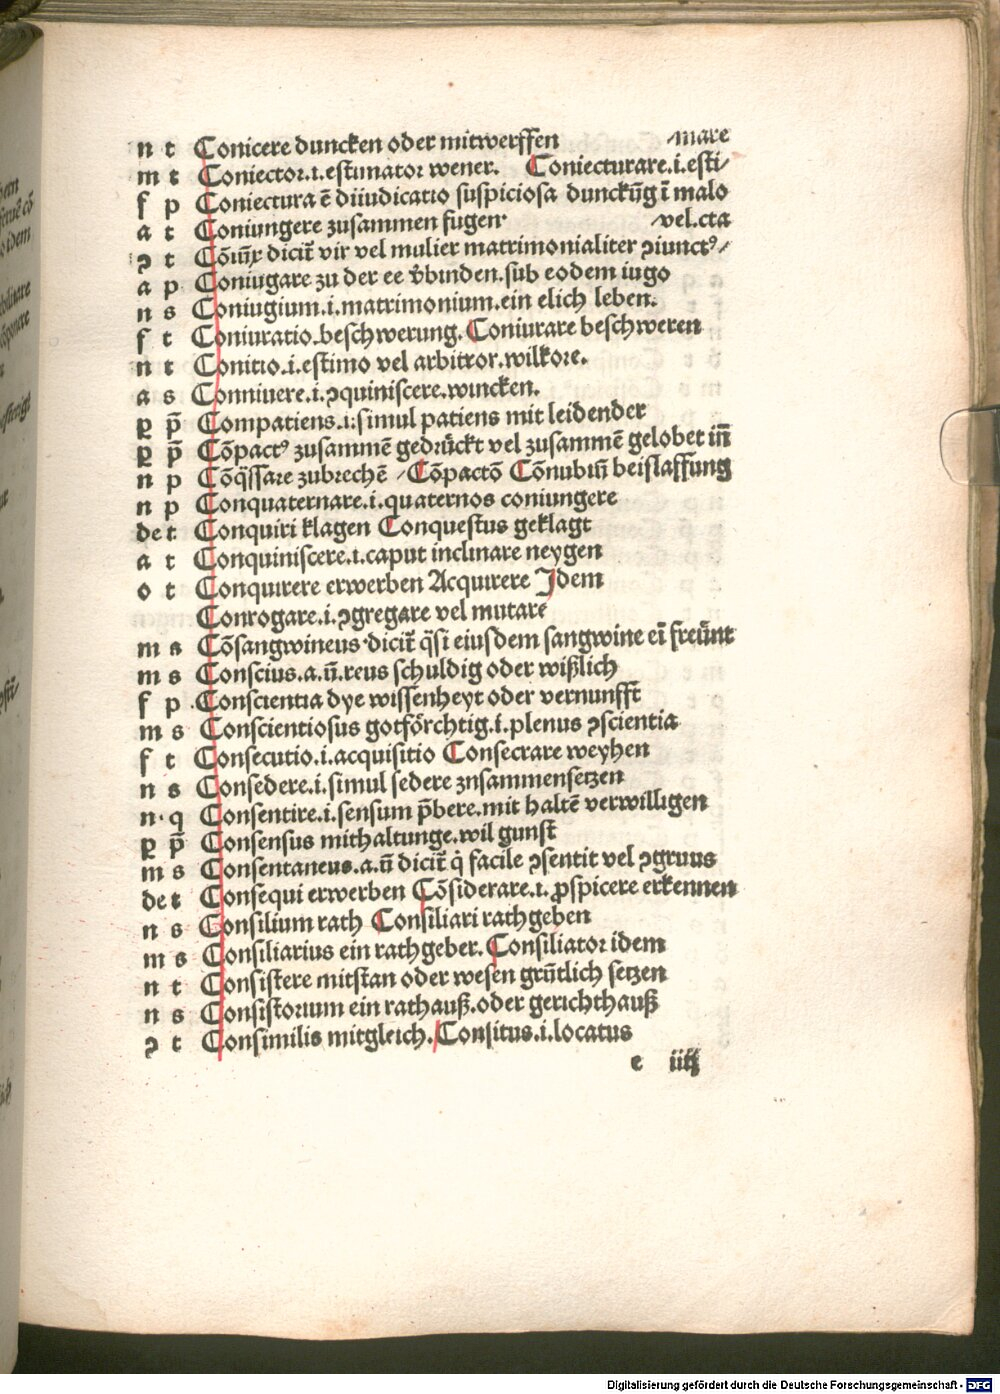 n t Conicere duncken oder mitwerffen ⁄mare
m t Coniector.i.estimator wener. Coniecturare.i.esti⁄
f p Coniectura ē diiudicatio suspiciosa dunckūg ī malo
a t Coniungere zusammen fugen vel.cta
ꝯ t dicit̄ vir vel mulier matrimonialiter ꝯiunctꝰ⁄
a p Coniugare zu der ee v̄binden.sub eodem iugo
n s Coniugium.i.matrimonium.ein elich leben.
f t Coniuratio.beschwerung.Coniurare beschweren
n t Conitio.i.estimo vel arbitror.wilkore.
a s Conniuere.i.ꝯquiniscere.wincken.
ꝑ p̄ Compatiens.i.simul patiens mit leidender
ꝑ p̄ Cōpactꝰ zusammē gedrückt vel zusammē gelobet iñ
n p Cōq̄ssare zubrechē ⁄Cōpactō Cōnubiū beislaffung
n p Conquaternare.i.quaternos coniungere
de t Conquiri klagen Conquestus geklagt
a t Conquiniscere.i.caput inclinare neygen
o t Conquirere erwerben Acquirere Idem
Conrogare.i.ꝯgregare vel mutare
m s Cōsangwineus dicit̄ q̄si eiusdem sangwine eī freünt
m s Conscius.a.ū.reus schuldig oder wißlich
f p Conscientia dye wissenheyt oder vernunfft
m s Conscientiosus gotförchtig.i.plenus ꝯscientia
f t Consecutio.i.acquisitio Consecrare weyhen
n s Consedere.i.simul sedere znsammensetzen
n q Consentire.i.sensum p̄bere.mit haltē verwilligen
ꝑ p̄ Consensus mithaltunge.wil gunst
m s Consentaneus.a.ū dicit̄ q̇ facile ꝯsentit vel ꝯgruus
de t Consequi erwerben Cōsiderare.i.ꝓspicere erkennen
n s Consilium rath Consiliari rathgeben
m s Consiliarius ein rathgeber.Consiliator idem
n t Consistere mitstan oder wesen grūtlich setzen
n s Consistorium ein rathauß.oder gerichthauß
ꝯ t Consimilis mitgleich.Consitus.i.locatus
e iiij
Digitalisierung gefördert durch die Deutsche Forschungsgemeinschaft - DFG